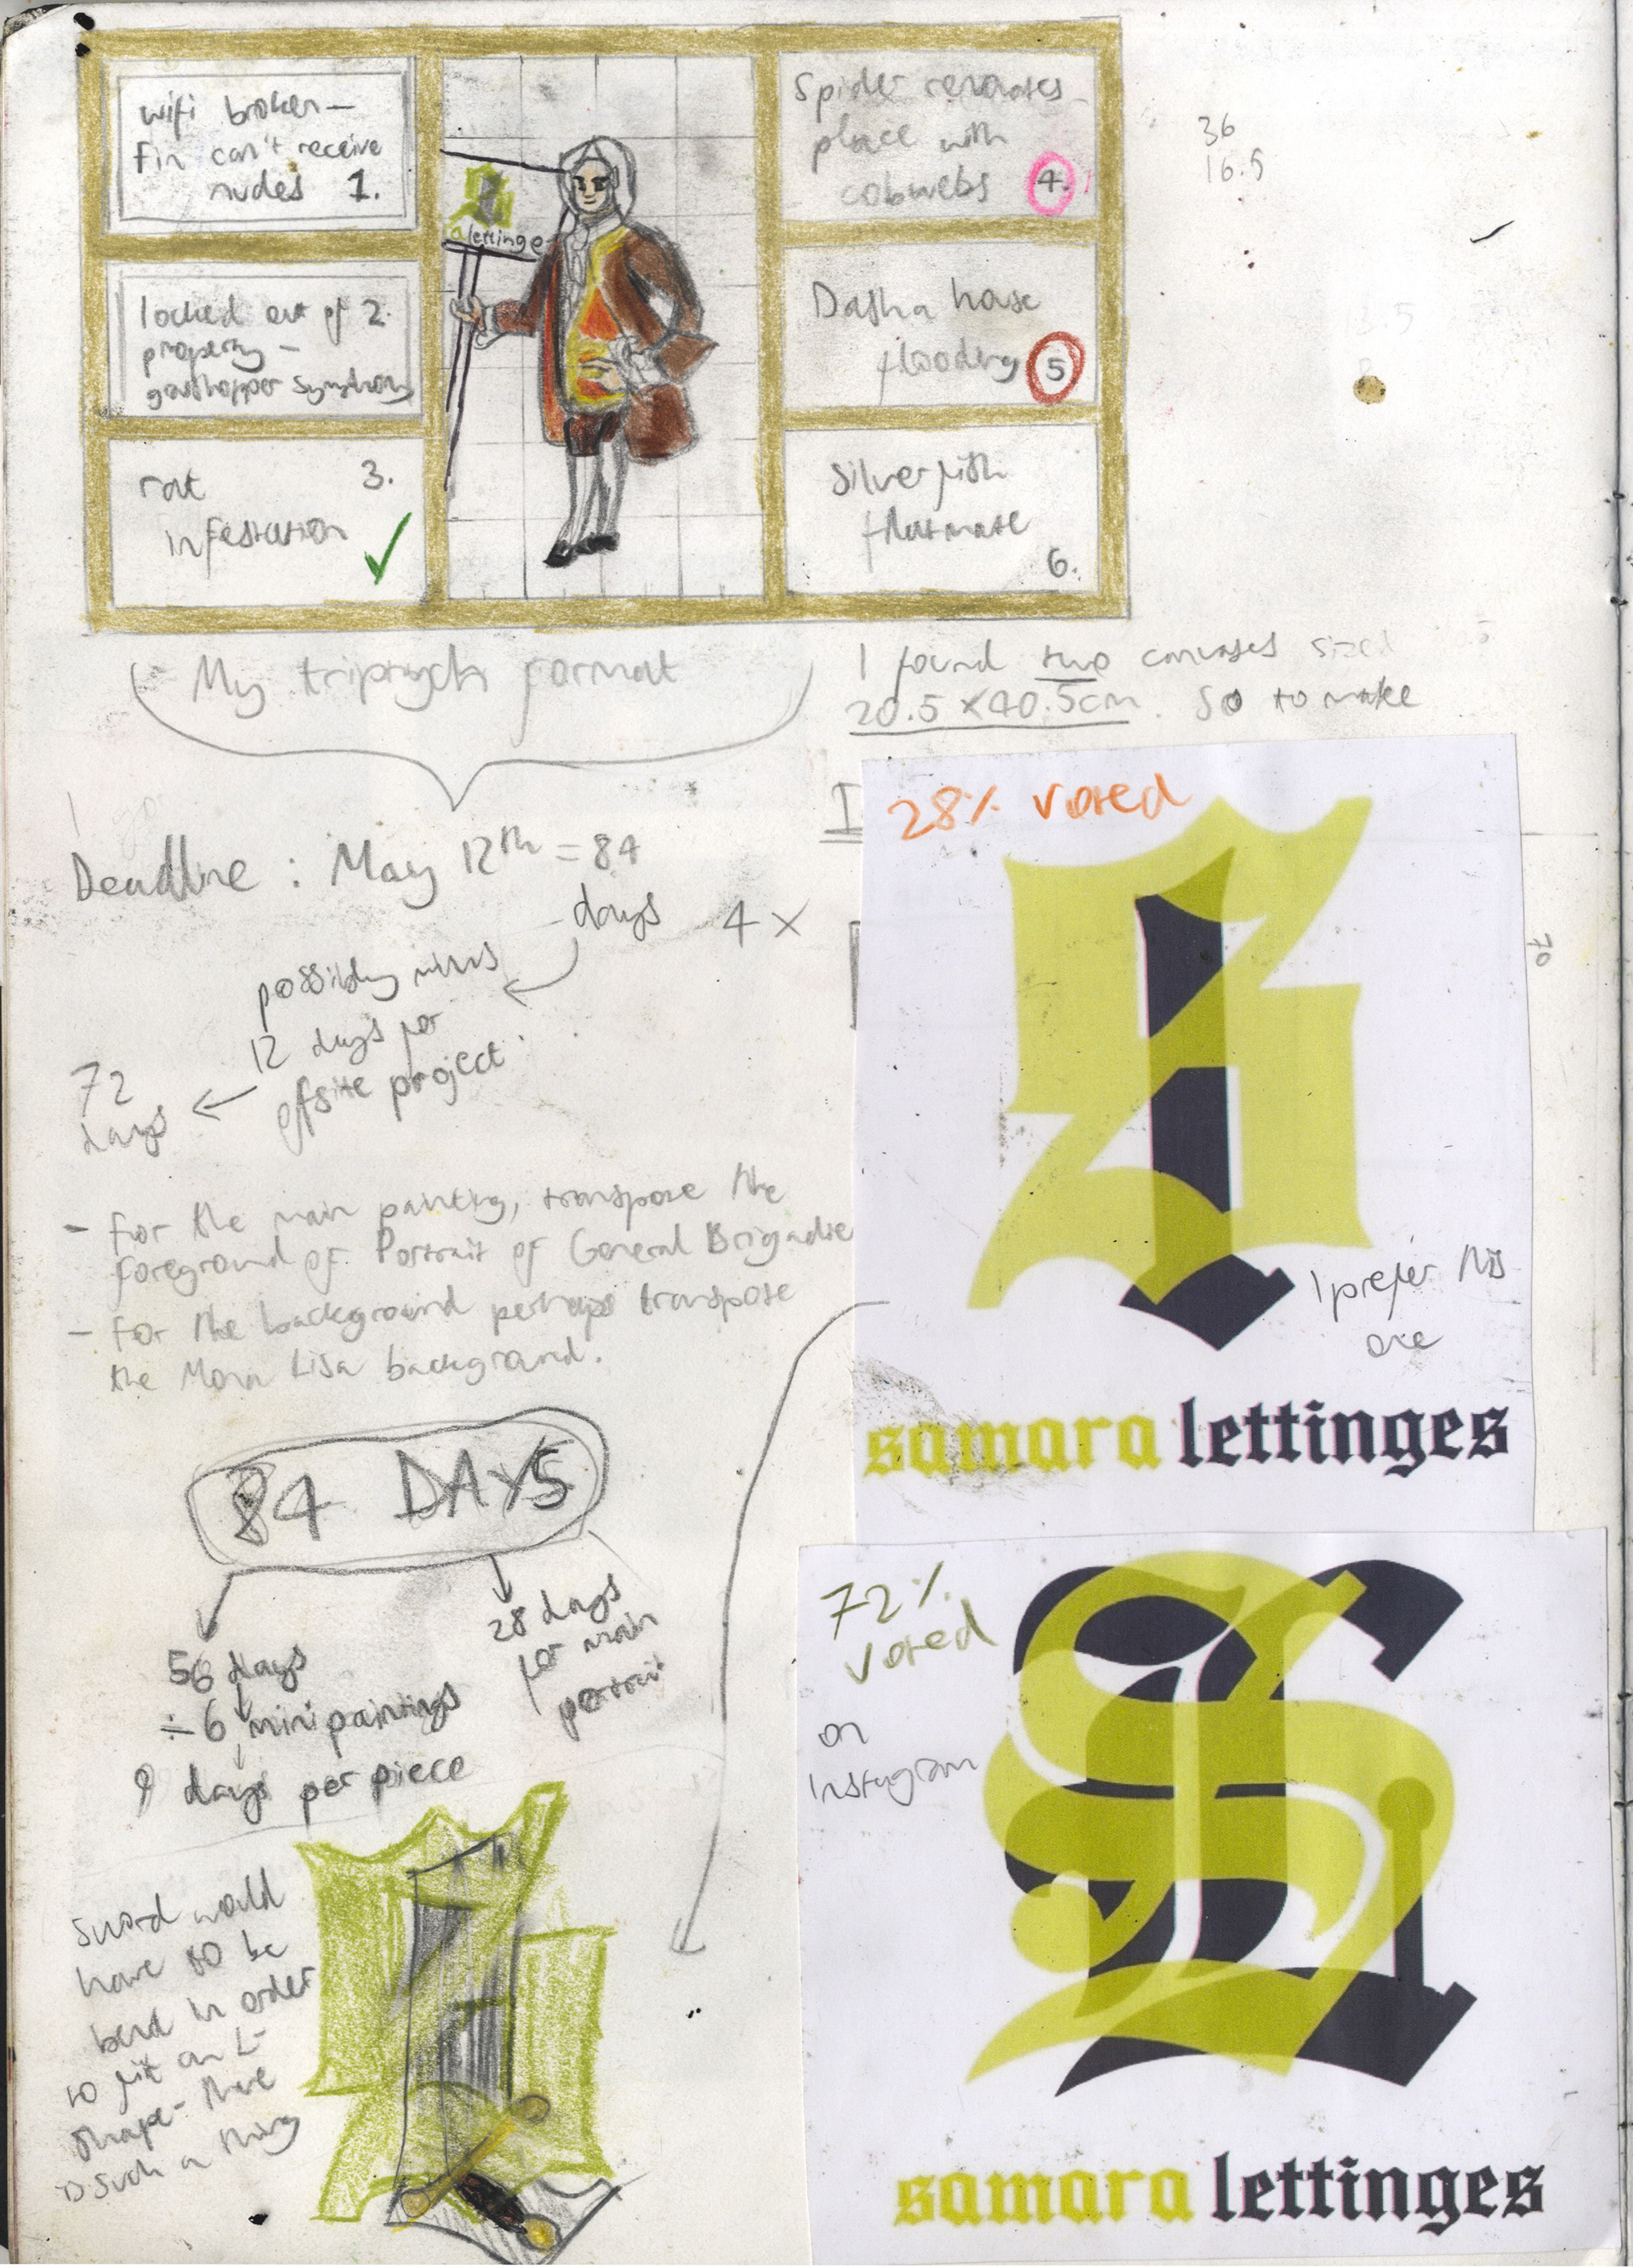 wifi broken –
Fin can't receive
nudes 1.
locked out of 2.
property –
grasshopper symphony
rat 3.
infestation
a lettinge
Spider renovates
place with
cobwebs 4.
Dasha house
flooding 5
Silverfish
flatmate
6.
36
16.5
My triptych format
I found two canvases sized
20.5 x 40.5cm. So to make
Deadline : May 12th = 84
days
4 x
possibly minus
12 days for
offsite project.
72
days
70
- For the main painting, transpose the
foreground of Portrait of General Brigadie
- For the background perhaps transpose
the Mona Lisa background.
84 DAYS
56 days
÷ 6 mini paintings
9 days per piece
28 days
for main
portrait
Sword would
have to be
bend in order
to fit an L-
shape - there
is such a thing
28% voted
I prefer this
one
samara lettinges
72%
voted
on
Instagram
samara lettinges